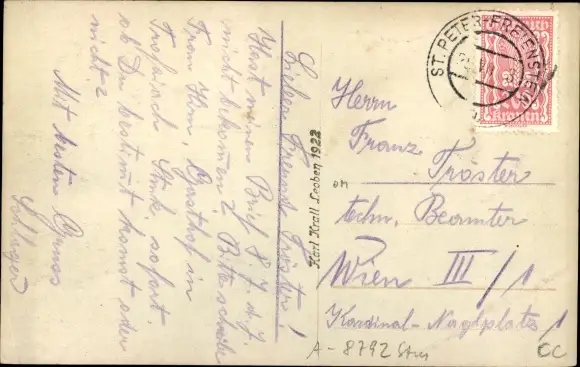 Lieber Freund Tröster!
Hast meinen Brief 8. 7. d. J.
nicht bekommen? Bitte schreibe
Gasthof in
Trofaiach Stmk. sofort
ob Du bestimmt komst oder
nicht?
Mit besten Gruss
Karl Krall Leoben 1922
ST. PETER-FREIENSTEIN
Kronen
Herrn
Franz
Troster
techn. Beamter
Wien III/1
Kardinal-Naglplatz 1
A-8792 Stm
CC